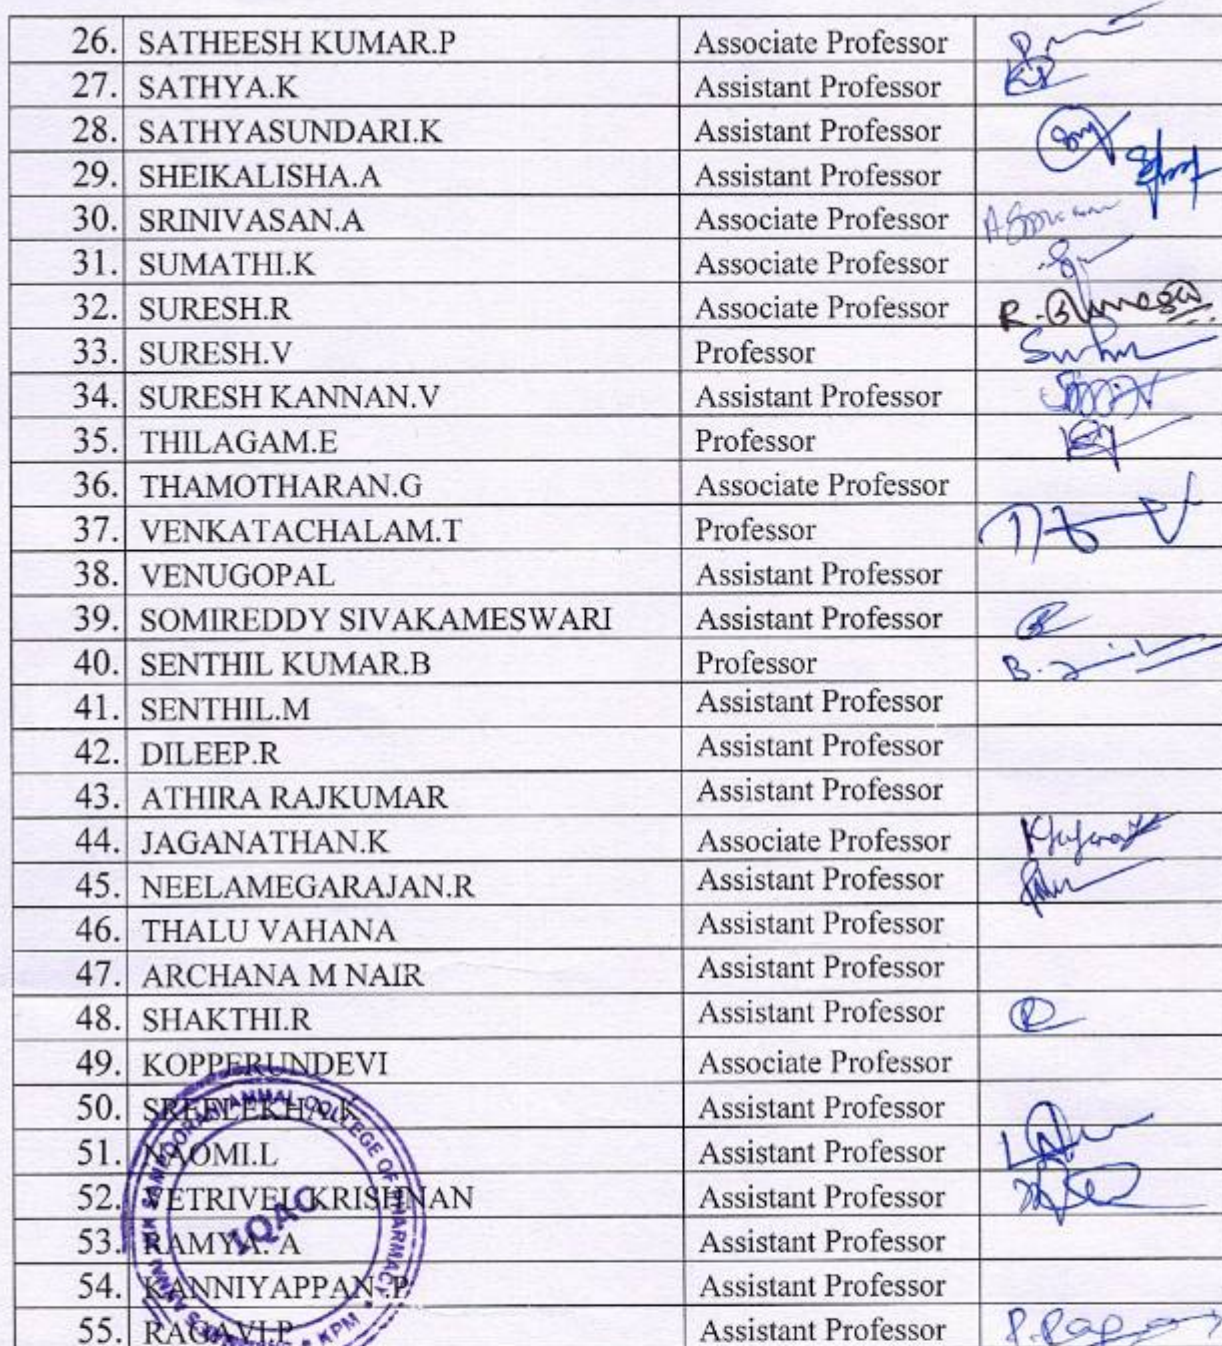 26. SATHEESH KUMAR.P Associate Professor
27. SATHYA.K Assistant Professor
28. SATHYASUNDARI.K Assistant Professor
29. SHEIKALISHA.A Assistant Professor
30. SRINIVASAN.A Associate Professor
31. SUMATHI.K Associate Professor
32. SURESH.R Associate Professor
33. SURESH.V Professor
34. SURESH KANNAN.V Assistant Professor
35. THILAGAM.E Professor
36. THAMOTHARAN.G Associate Professor
37. VENKATACHALAM.T Professor
38. VENUGOPAL Assistant Professor
39. SOMIREDDY SIVAKAMESWARI Assistant Professor
40. SENTHIL KUMAR.B Professor
41. SENTHIL.M Assistant Professor
42. DILEEP.R Assistant Professor
43. ATHIRA RAJKUMAR Assistant Professor
44. JAGANATHAN.K Associate Professor
45. NEELAMEGARAJAN.R Assistant Professor
46. THALU VAHANA Assistant Professor
47. ARCHANA M NAIR Assistant Professor
48. SHAKTHI.R Assistant Professor
49. KOPPERUNDEVI Associate Professor
50. SREELEKHA.K Assistant Professor
51. NAOMI.L Assistant Professor
52. VETRIVEL KRISHNAN Assistant Professor
53. RAMYA. A Assistant Professor
54. KANNIYAPPAN. P Assistant Professor
55. RAGAVI.P Assistant Professor
COLLEGE OF PHARMACY
IQAC
KPM